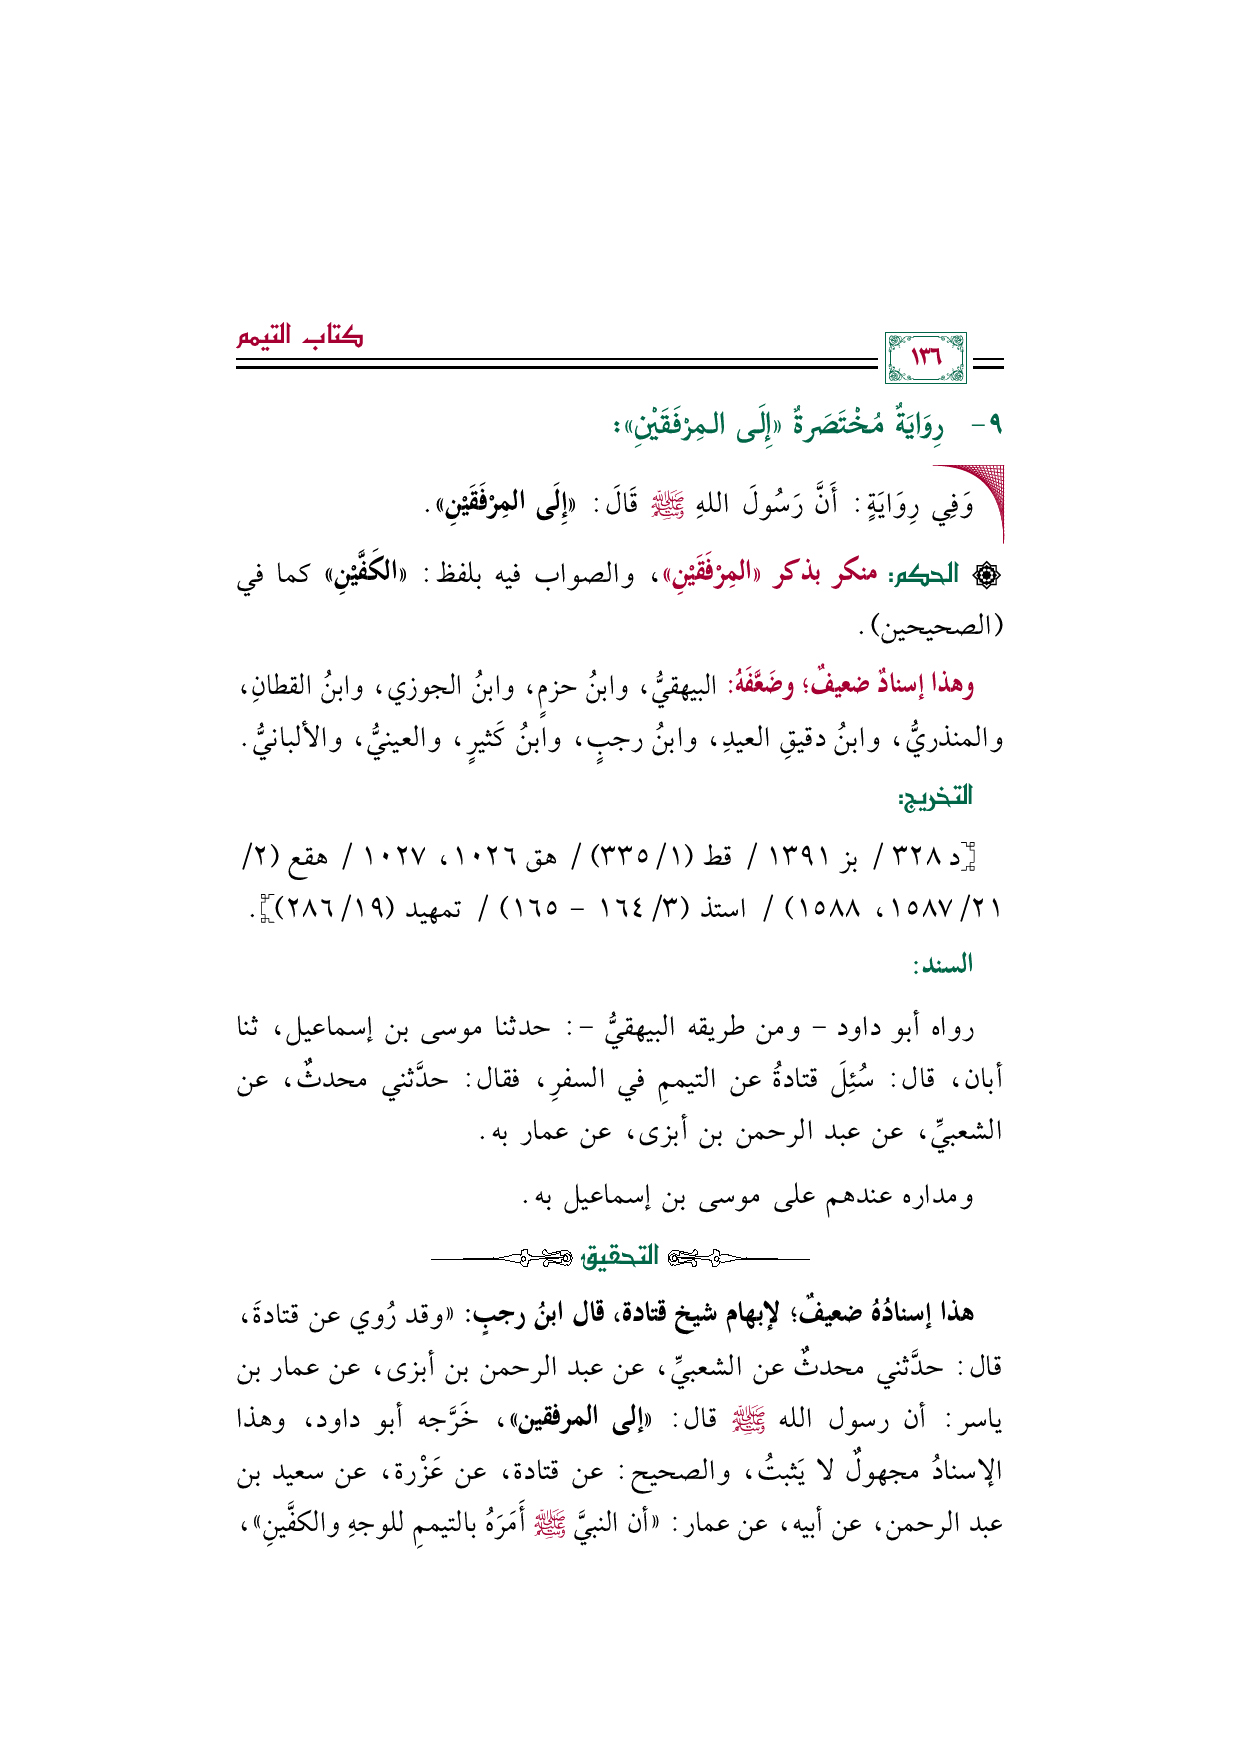 كتاب التيمم
١٣٦
٩- رِوَايَةٌ مُخْتَصَرةٌ «إِلَى المِرْفَقَيْنِ»:
وَفِي رِوَايَةٍ: أَنَّ رَسُولَ اللهِ ﷺ قَالَ: «إِلَى المِرْفَقَيْنِ».
الحكم: منكر بذكر «المِرْفَقَيْنِ»، والصواب فيه بلفظ: «الكَفَّيْنِ» كما في
(الصحيحين).
وهذا إسنادٌ ضعيفٌ؛ وضَعَّفَهُ: البيهقيُّ، وابنُ حزمٍ، وابنُ الجوزي، وابنُ القطانِ،
والمنذريُّ، وابنُ دقيقِ العيدِ، وابنُ رجبٍ، وابنُ كَثيرٍ، والعينيُّ، والألبانيُّ.
التخريج:
[د ٣٢٨ / بز ١٣٩١ / قط (١/ ٣٣٥) / هق ١٠٢٦، ١٠٢٧ / هقع (٢/
٢١/ ١٥٨٧، ١٥٨٨) / استذ (٣/ ١٦٤ - ١٦٥) / تمهيد (١٩/ ٢٨٦)].
السند:
رواه أبو داود - ومن طريقه البيهقيُّ -: حدثنا موسى بن إسماعيل، ثنا
أبان، قال: سُئِلَ قتادةُ عن التيممِ في السفرِ، فقال: حدَّثني محدثٌ، عن
الشعبيِّ، عن عبد الرحمن بن أبزى، عن عمار به.
ومداره عندهم على موسى بن إسماعيل به.
التحقيق
هذا إسنادُهُ ضعيفٌ؛ لإبهام شيخ قتادة، قال ابنُ رجبٍ: «وقد رُوي عن قتادةَ،
قال: حدَّثني محدثٌ عن الشعبيِّ، عن عبد الرحمن بن أبزى، عن عمار بن
ياسر: أن رسول الله ﷺ قال: «إلى المرفقين»، خَرَّجه أبو داود، وهذا
الإسنادُ مجهولٌ لا يَثبتُ، والصحيح: عن قتادة، عن عَزْرة، عن سعيد بن
عبد الرحمن، عن أبيه، عن عمار: «أن النبيَّ ﷺ أَمَرَهُ بالتيممِ للوجهِ والكفَّينِ»،